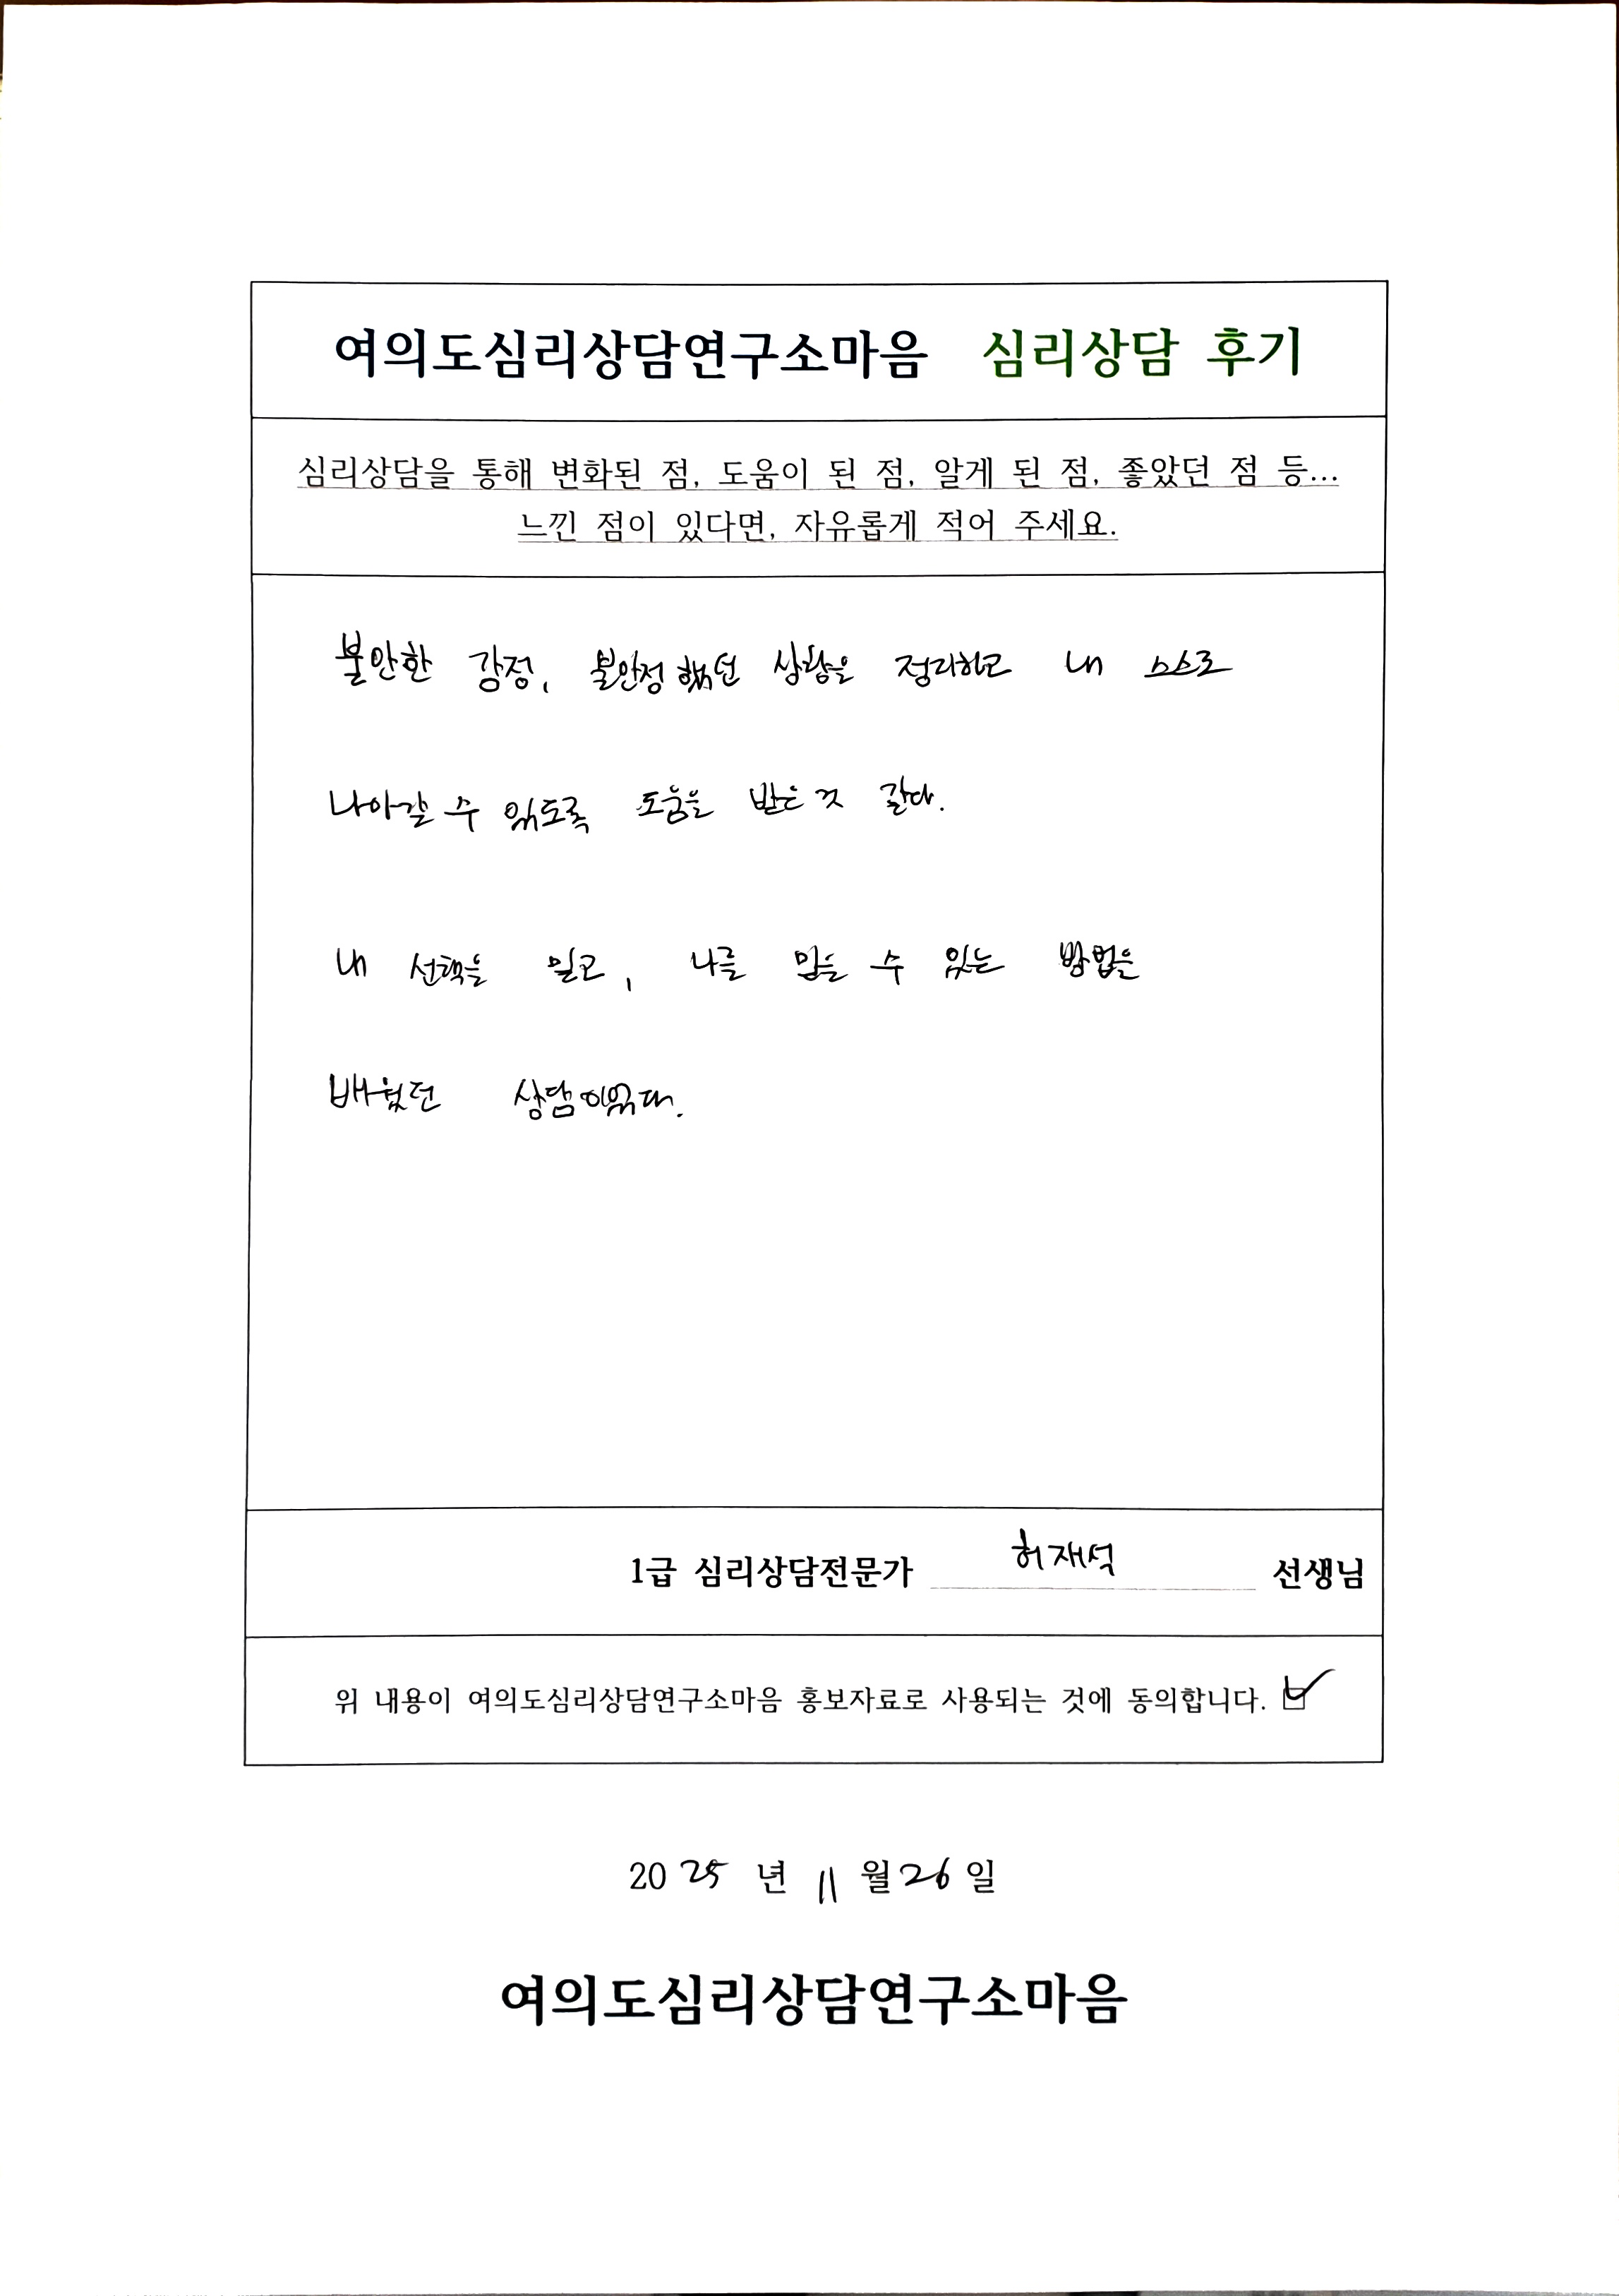 여의도심리상담연구소마음 심리상담 후기
심리상담을 통해 변화된 점, 도움이 된 점, 알게 된 점, 좋았던 점 등...
느낀 점이 있다면, 자유롭게 적어 주세요.
불안한 감정, 불안정했던 상황을 정리하고 내 스스로
나아갈 수 있도록 도움을 받은 것 같다.
내 선택을 믿고, 나를 믿을 수 있는 방법을
배웠던 상담이었다.
1급 심리상담전문가 허재석 선생님
위 내용이 여의도심리상담연구소마음 홍보자료로 사용되는 것에 동의합니다. ☑
2025 년 11 월 26 일
여의도심리상담연구소마음